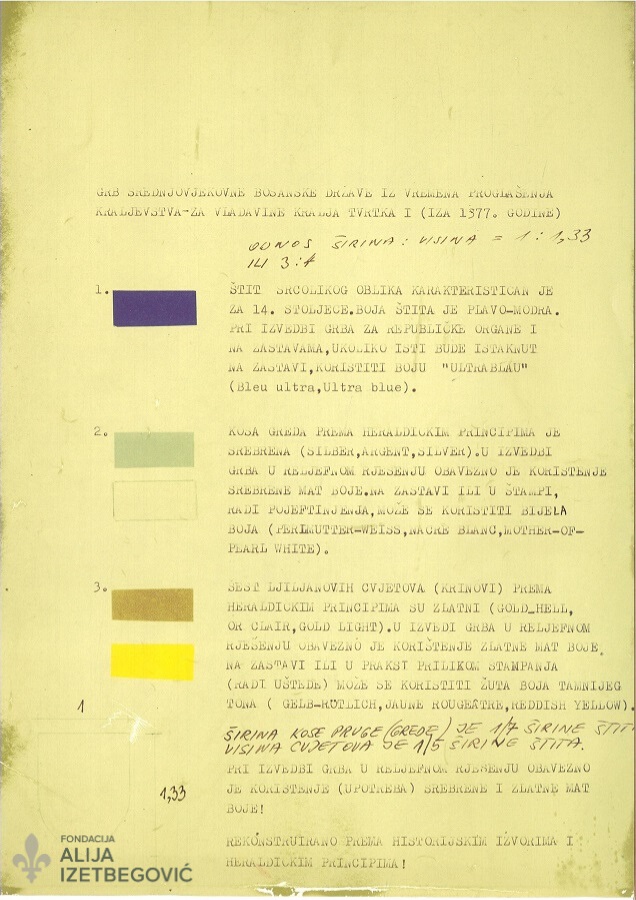 GRB SREDNJOVJEKOVNE BOSANSKE DRŽAVE IZ VREMENA PROGLAŠENJA
KRALJEVSTVA-ZA VLADAVINE KRALJA TVRTKA I (IZA 1377. GODINE)
ODNOS ŠIRINA : VISINA = 1 : 1,33
ILI 3:4
1.
ŠTIT SRCOLIKOG OBLIKA KARAKTERISTIČAN JE
ZA 14. STOLJEĆE.BOJA ŠTITA JE PLAVO-MODRA.
PRI IZVEDBI GRBA ZA REPUBLIČKE ORGANE I
NA ZASTAVAMA,UKOLIKO ISTI BUDE ISTAKNUT
NA ZASTAVI,KORISTITI BOJU "ULTRABLAU"
(Bleu ultra,Ultra blue).
2.
KOSA GREDA PREMA HERALDIČKIM PRINCIPIMA JE
SREBRENA (SILBER,ARGENT,SILVER).U IZVEDBI
GRBA U RELJEFNOM RJEŠENJU OBAVEZNO JE KORIŠTENJE
SREBRENE MAT BOJE.NA ZASTAVI ILI U ŠTAMPI,
RADI POJEFTINJENJA,MOŽE SE KORISTITI BIJELA
BOJA (PERLMUTTER-WEISS,NACRE BLANC,MOTHER-OF-
PEARL WHITE).
3.
ŠEST LJILJANOVIH CVJETOVA (KRINOVI) PREMA
HERALDIČKIM PRINCIPIMA SU ZLATNI (GOLD_HELL,
OR CLAIR,GOLD LIGHT).U IZVEDI GRBA U RELJEFNOM
RJEŠENJU OBAVEZNO JE KORIŠTENJE ZLATNE MAT BOJE.
NA ZASTAVI ILI U PRAKSI PRILIKOM ŠTAMPANJA
(RADI UŠTEDE) MOŽE SE KORISTITI ŽUTA BOJA TAMNIJEG
TONA ( GELB-RÖTLICH,JAUNE ROUGEÂTRE,REDDISH YELLOW).
1
ŠIRINA KOSE PRUGE (GREDE) JE 1/7 ŠIRINE ŠTIT
VISINA CVJETOVA JE 1/5 ŠIRINE ŠTITA.
PRI IZVEDBI GRBA U RELJEFNOM RJEŠENJU OBAVEZNO
1,33
JE KORIŠTENJE (UPOTREBA) SREBRENE I ZLATNE MAT
BOJE!
REKONSTRUIRANO PREMA HISTORIJSKIM IZVORIMA I
HERALDIČKIM PRINCIPIMA!
FONDACIJA
ALIJA
IZETBEGOVIĆ